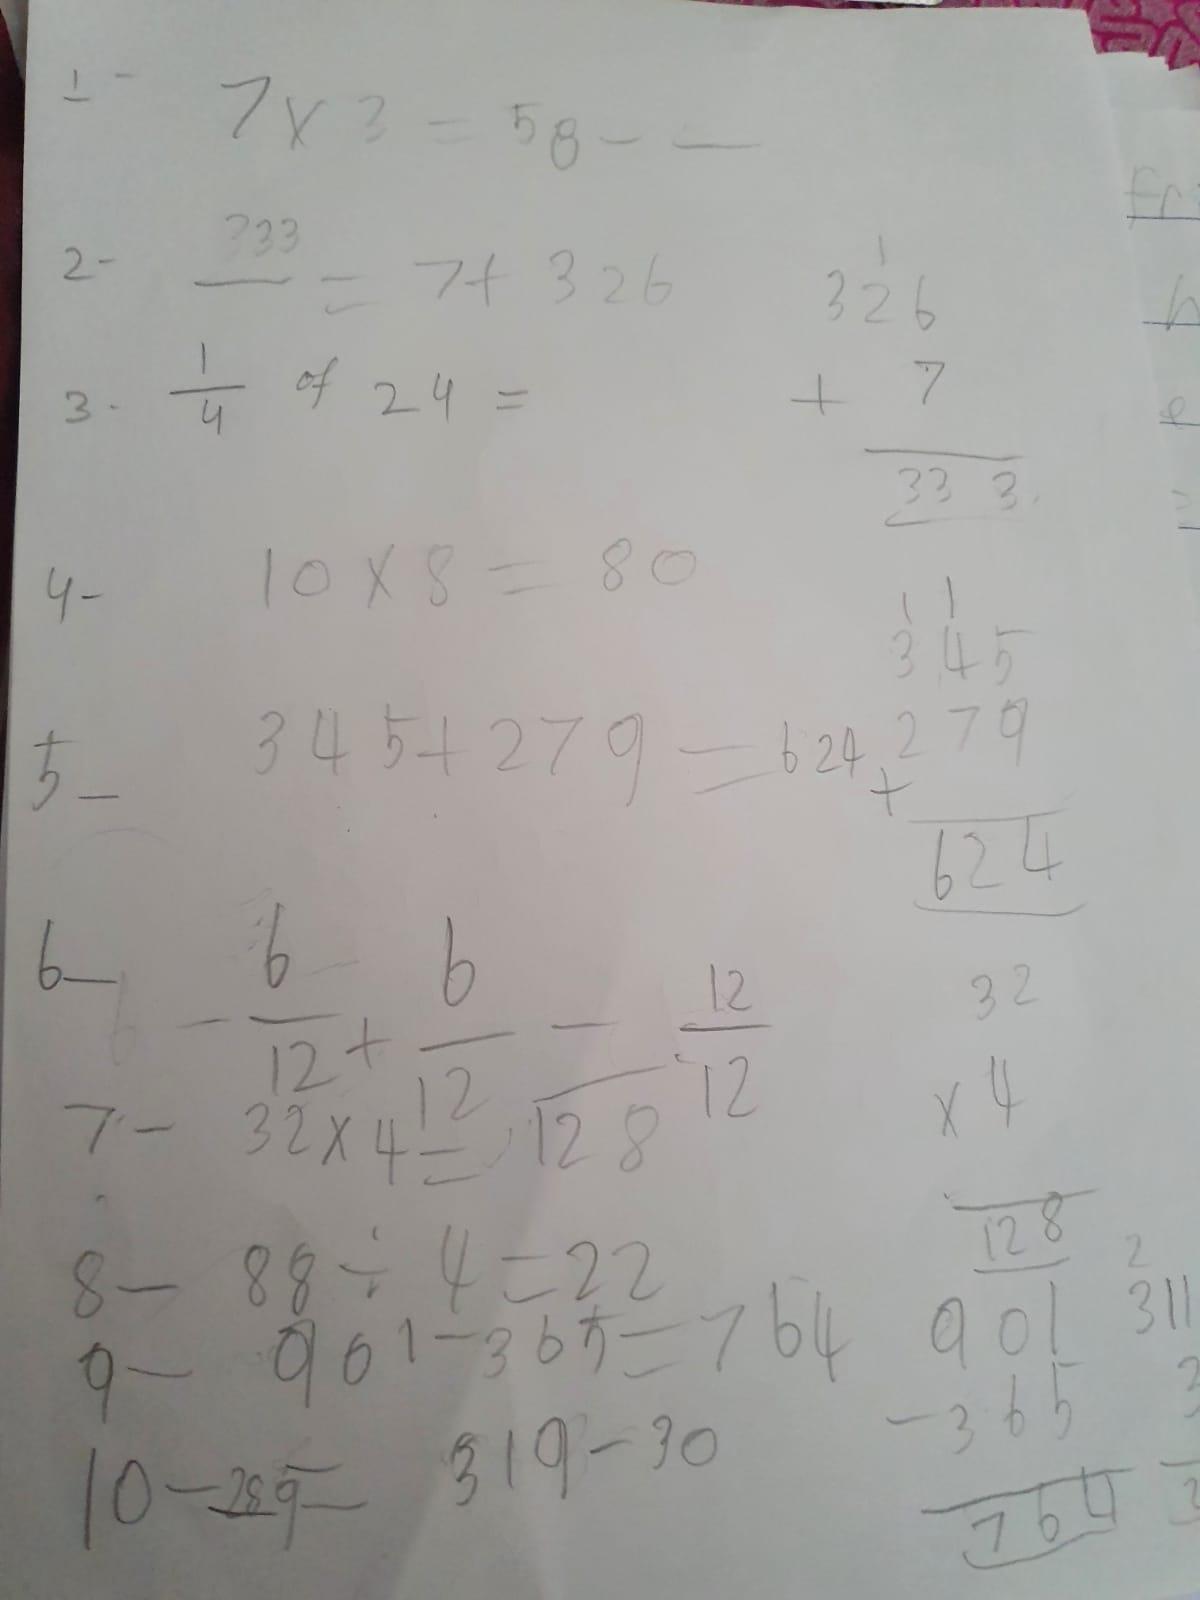 1- 7 x 3 = 58 - —
2- 333 = 7 + 326
326
+ 7
333
3. 1/4 of 24 =
4- 10 x 8 = 80
5- 345 + 279 = 624
345
279
+
624
6- 6/12 + 6/12 - 12/12
7- 32 x 4 = 128
32
x 4
128
8- 88 ÷ 4 = 22
9- 901 - 365 = 764
901
- 365
764
10- 289 = 319 - 30